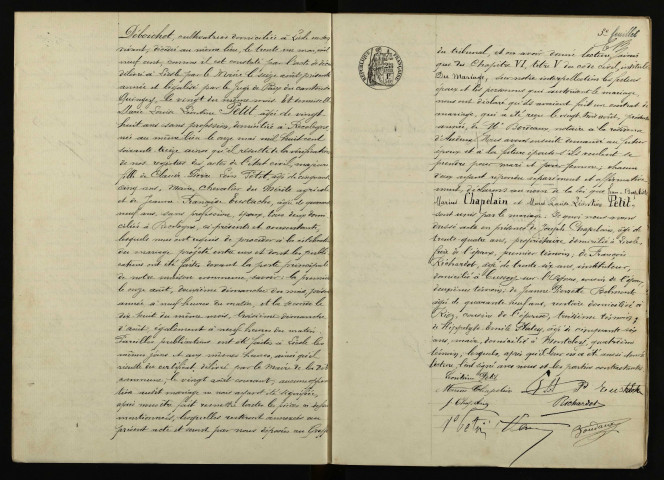 Débouchet, cultivatrice domiciliée à Liesle
vivant, décédé au même lieu, le trente un mai, mil
neuf cent, comme il est constaté par l'acte de
à Liesle par le Maire le seize août présente
année et légalisé par le Juge de Paix du canton de
Quingey, le vingt du même mois. Et demoiselle
Marie Louise Léontine Petit, âgée de vingt
huit ans sans profession, domiciliée à Recologne
née au même lieu le onze mai mil huit cent
soixante treize ainsi qu'il résulte de la vérification
de nos registres des actes de l'état civil, majeure
fille de Claude Pierre Léon Petit, âgé de cinquante
cinq ans, Maire, Chevalier du Mérite agricole
et de Jeanne Françoise Eustache, âgée de quarante
neuf ans, sans profession, époux, tous deux domi
ciliés à Recologne, ci présents et consentants,
lesquels nous ont requis de procéder à la célébration
du mariage projeté entre eux et dont les publi
cations ont été faites devant la porte principale
de notre maison commune, savoir: la première
le onze août, deuxième dimanche du mois, présente
année à neuf heures du matin, et la seconde le
dix huit du même mois, troisième dimanche
d'août, également à neuf heures du matin.
Pareilles publications ont été faites à Liesle les
mêmes jours et aux mêmes heures, ainsi qu'il
résulte du certificat, délivré par le Maire de la dite
commune, le vingt août courant; aucune oppo
sition audit mariage ne nous ayant été signifiée,
après nous être fait remettre toutes les pièces ci-dessus
mentionnées, lesquelles resteront annexées au
présent acte et seront par nous déposées au Greffe
5e feuillet
du tribunal, et en avoir donné lecture, ainsi
que du Chapitre VI, titre V du code Civil, intitulé
Du Mariage, sur notre interpellation les futurs
époux et les personnes qui autorisent le mariage,
nous ont déclaré qu'ils avaient fait un contrat de
mariage, qui a été reçu le vingt trois août, présente
année, de Me Bordeaux, notaire à la résidence
de Nous avons ensuite demandé au futur
époux et à la future épouse s'ils veulent se
prendre pour mari et pour femme, chacun
d'eux ayant répondu séparément et affirmative
ment, déclarons au nom de la loi que Jean-Baptiste
Marius Chapelain et Marie Louise Léontine Petit
sont unis par le mariage. De quoi nous avons
dressé acte en présence de Joseph Chapelain, âgé de
trente quatre ans, propriétaire, domicilié à Liesle
frère de l'époux, premier témoin; de François
Richardot, âgé de trente six ans, instituteur,
domicilié à Cussey sur l'Ognon, cousin de l'époux,
deuxième témoin; de
âgé de quarante neuf ans, rentière domicilié à
cousin de l'épouse, troisième témoin;
de Hippolyte Émile âgé de cinquante six
ans, maire, domicilié à quatrième
témoin, lesquels, après qu'il leur en a été aussi donné
lecture, l'ont signé avec nous et les parties contractantes
Léontine Petit
Marius Chapelain
P Eustache
J Chapelain
Richardot